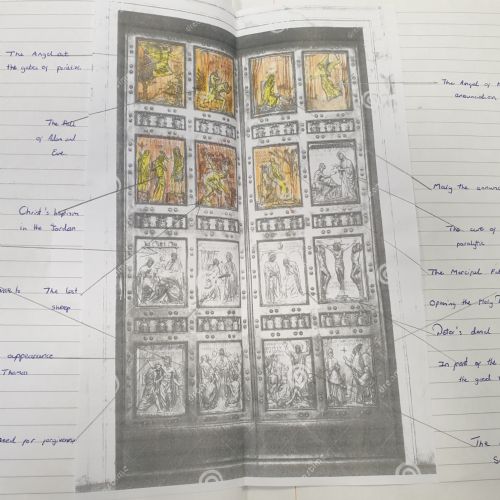 The Angel at
the gates of paradise.
The fall
of Adam and
Eve.
Christ's baptism
in the Jordan
The lost
sheep
appearance
Thomas
need for forgiveness
The Angel of
annunciation
Mary the annunc
The cure of
paralytic
The Merciful Fat
Opening the Holy D
Peter's denial
In front of the
the good
The
S